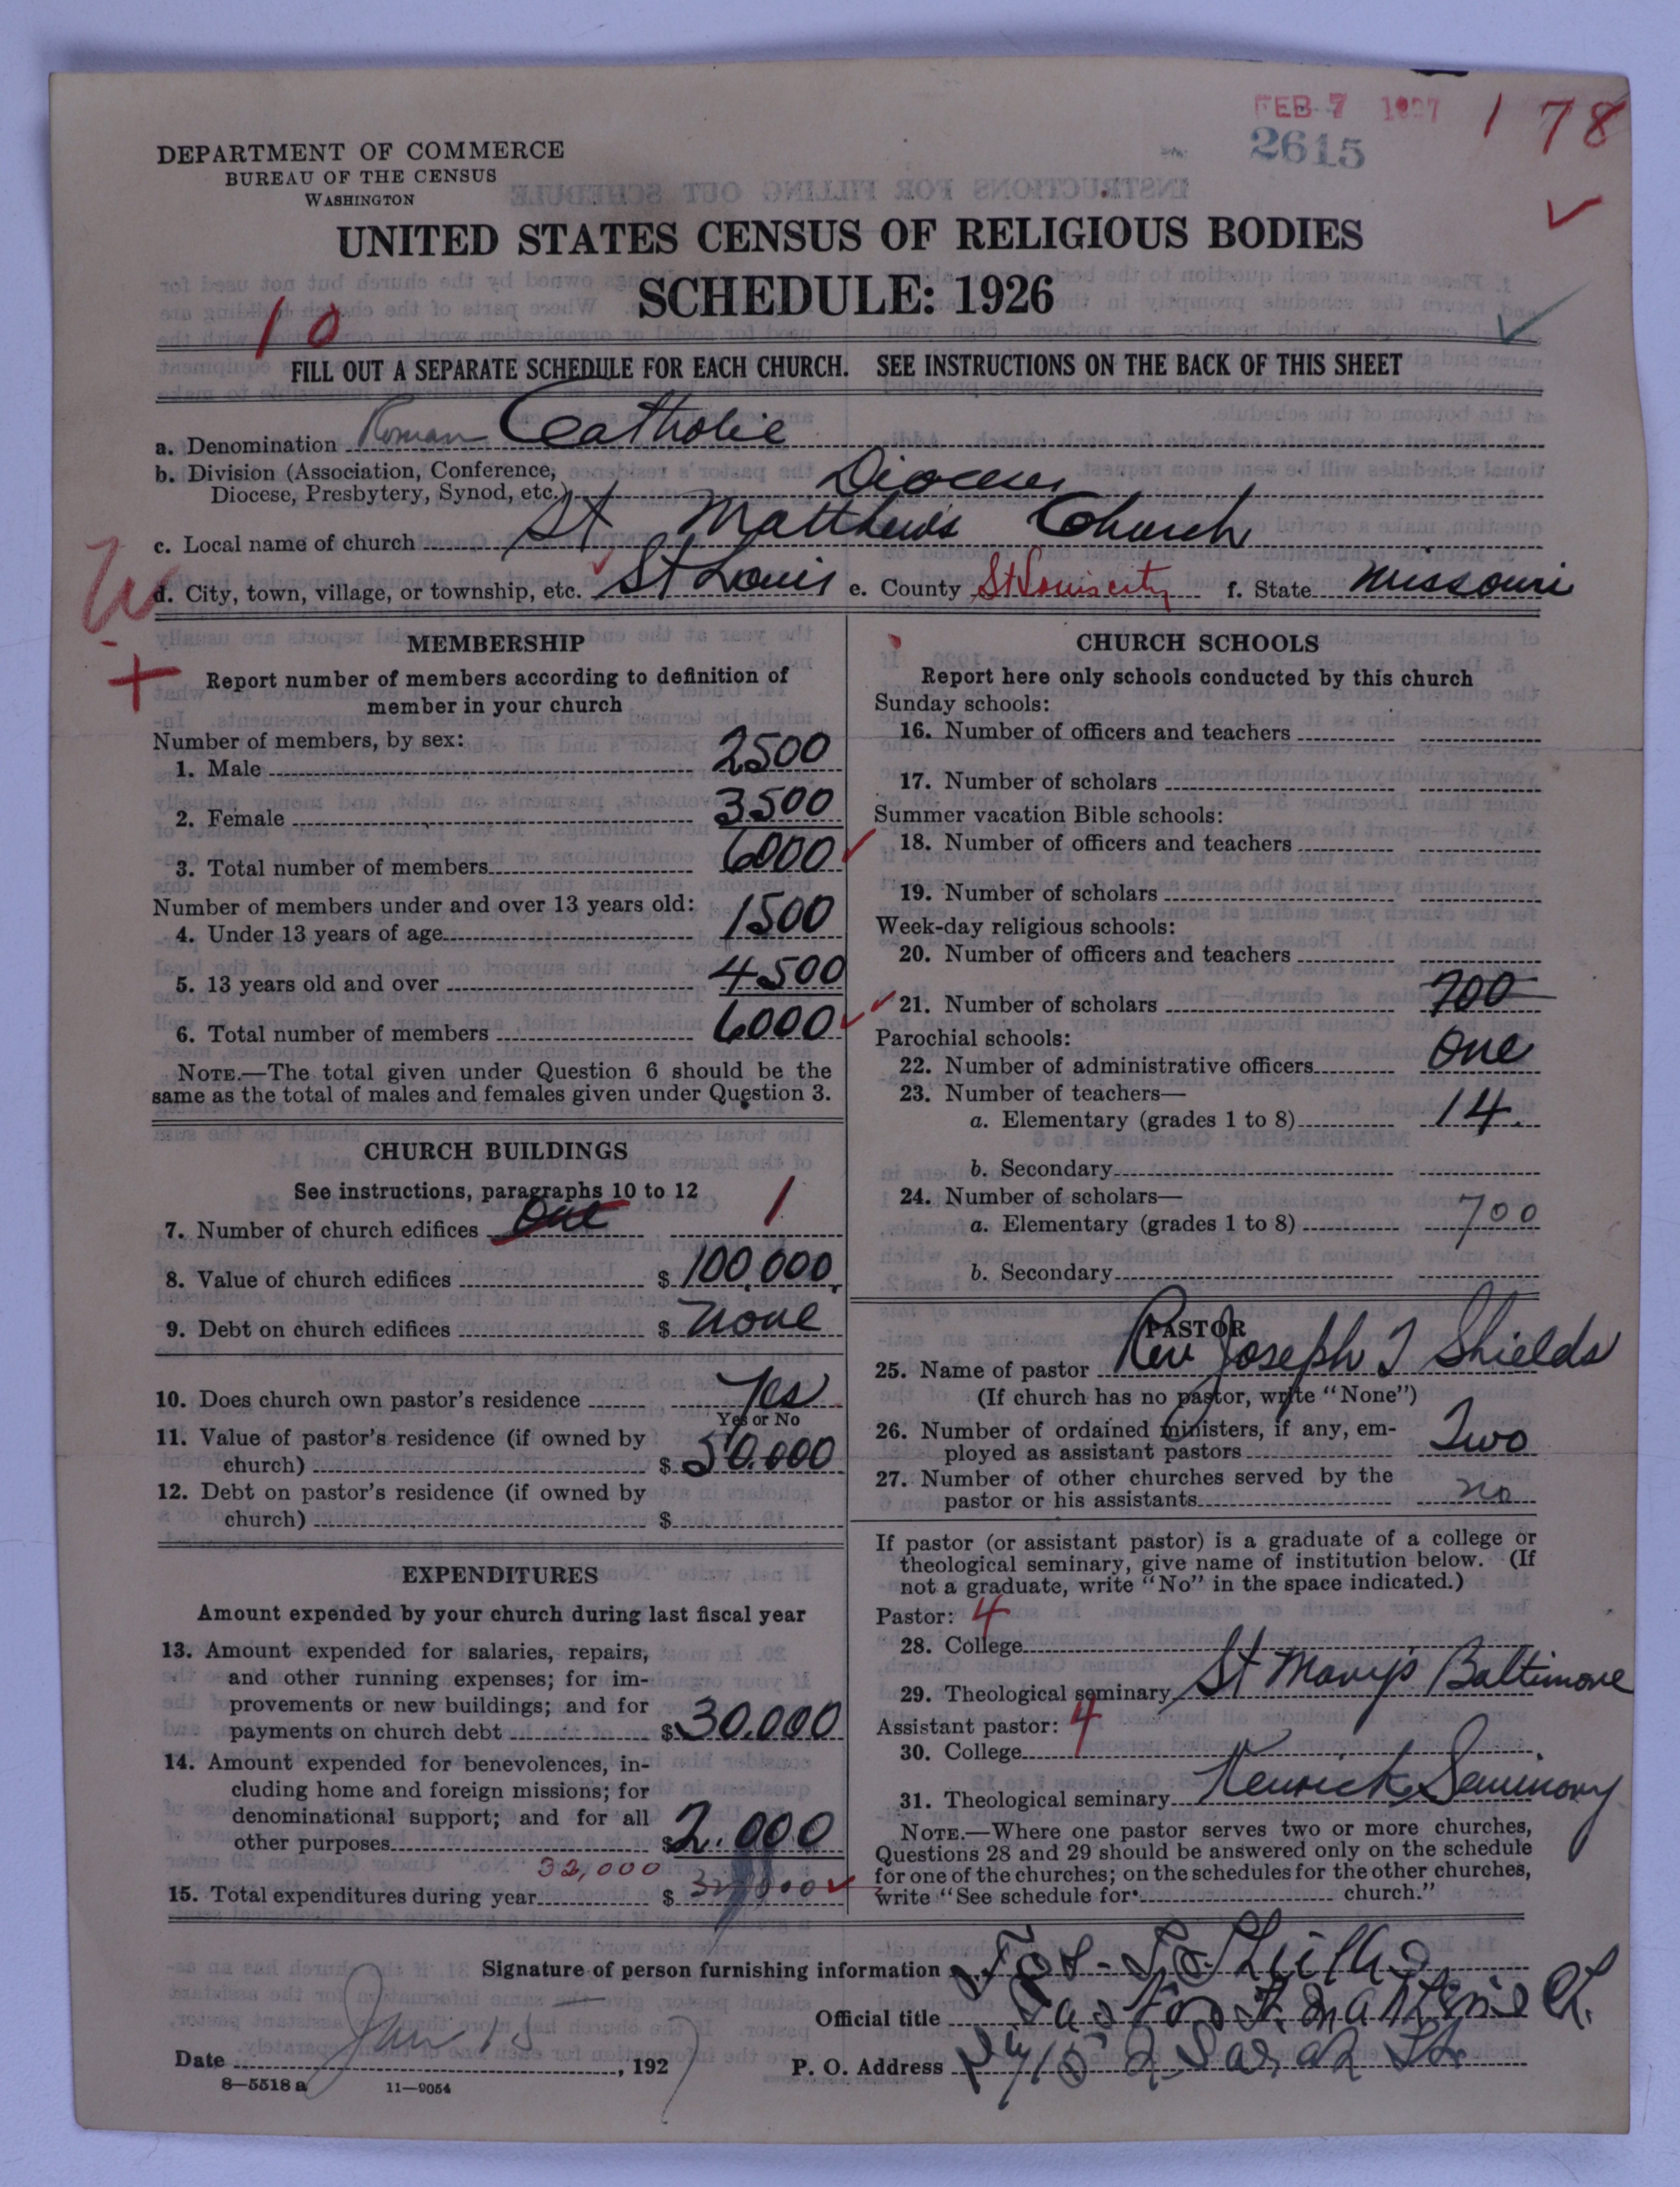 FEB 7 1927
1 78
2615
DEPARTMENT OF COMMERCE
BUREAU OF THE CENSUS
WASHINGTON
UNITED STATES CENSUS OF RELIGIOUS BODIES
SCHEDULE: 1926
10
FILL OUT A SEPARATE SCHEDULE FOR EACH CHURCH. SEE INSTRUCTIONS ON THE BACK OF THIS SHEET
a. Denomination Roman Catholic
b. Division (Association, Conference,
Diocese, Presbytery, Synod, etc.) Diocese
c. Local name of church St Matthew's Church
d. City, town, village, or township, etc. St Louis e. County St Louis city f. State Missouri
MEMBERSHIP
Report number of members according to definition of
member in your church
Number of members, by sex:
1. Male 2500
2. Female 3500
3. Total number of members 6000
Number of members under and over 13 years old:
4. Under 13 years of age 1500
5. 13 years old and over 4500
6. Total number of members 6000
NOTE.—The total given under Question 6 should be the
same as the total of males and females given under Question 3.
CHURCH BUILDINGS
See instructions, paragraphs 10 to 12
7. Number of church edifices One 1
8. Value of church edifices $ 100,000
9. Debt on church edifices $ none
10. Does church own pastor's residence Yes
Yes or No
11. Value of pastor's residence (if owned by
church) $ 50.000
12. Debt on pastor's residence (if owned by
church) $
EXPENDITURES
Amount expended by your church during last fiscal year
13. Amount expended for salaries, repairs,
and other running expenses; for im-
provements or new buildings; and for
payments on church debt $ 30.000
14. Amount expended for benevolences, in-
cluding home and foreign missions; for
denominational support; and for all
other purposes $ 2.000
32,000
15. Total expenditures during year $ 32,000
CHURCH SCHOOLS
Report here only schools conducted by this church
Sunday schools:
16. Number of officers and teachers
17. Number of scholars
Summer vacation Bible schools:
18. Number of officers and teachers
19. Number of scholars
Week-day religious schools:
20. Number of officers and teachers
21. Number of scholars 700
Parochial schools:
22. Number of administrative officers One
23. Number of teachers—
a. Elementary (grades 1 to 8) 14
b. Secondary
24. Number of scholars—
a. Elementary (grades 1 to 8) 700
b. Secondary
PASTOR
25. Name of pastor Rev Joseph T Shields
(If church has no pastor, write "None")
26. Number of ordained ministers, if any, em-
ployed as assistant pastors Two
27. Number of other churches served by the
pastor or his assistants no
If pastor (or assistant pastor) is a graduate of a college or
theological seminary, give name of institution below. (If
not a graduate, write "No" in the space indicated.)
Pastor: 4
28. College
29. Theological seminary St Mary's Baltimore
Assistant pastor: 4
30. College
31. Theological seminary Kenrick Seminary
NOTE.—Where one pastor serves two or more churches,
Questions 28 and 29 should be answered only on the schedule
for one of the churches; on the schedules for the other churches,
write "See schedule for church."
Signature of person furnishing information Jos. T. Shields
Official title Pastor St. Matthew's Ch.
Date Jan 15, 1927 P. O. Address Sarah St
8—5518 a 11—9054